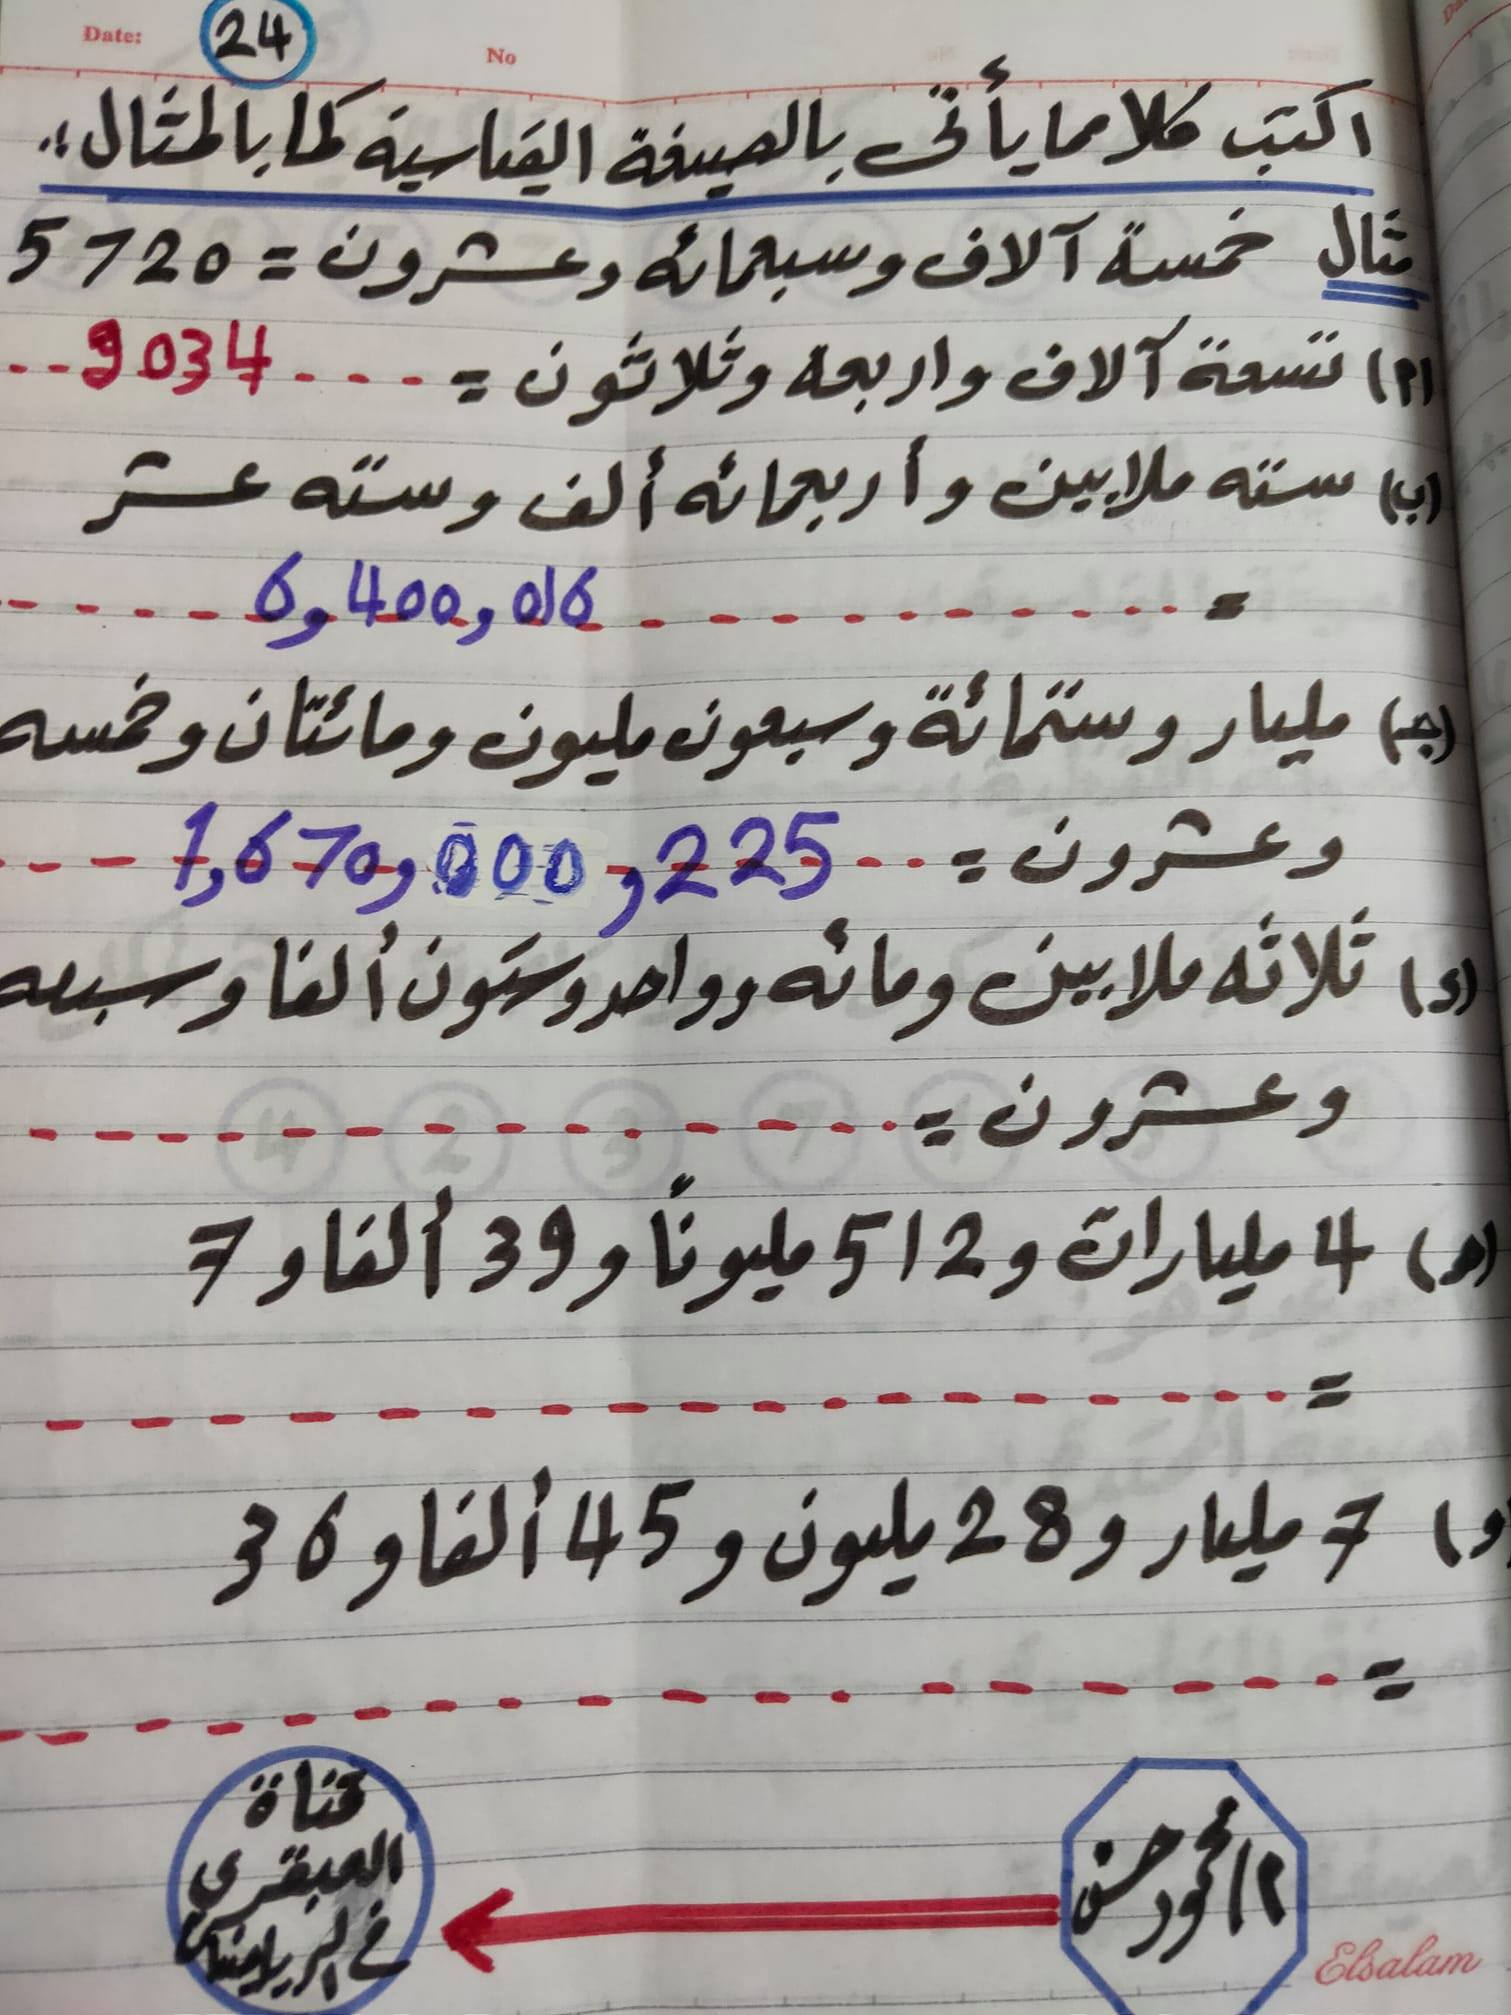 Date:
24
No
اكتب كلا مما يأتى بالصيغة القياسية كما بالمثال:
مثال خمسة آلاف وسبعمائه وعشرون = 5720
(أ) تسعة آلاف واربعه وثلاثون = 9034
(ب) سته ملايين وأربعمائه ألف وسته عشر
= 6,400,016
(جـ) مليار وستمائة وسبعون مليون ومائتان وخمسه
وعشرون = 1,670,000,225
(د) ثلاثه ملايين ومائه وواحد وستون ألفا وسبعه
وعشرون =
(هـ) 4 مليارات و 512 مليونًا و 39 ألفا و 7
=
(و) 7 مليار و 28 مليون و 45 ألفا و 36
=
أ/محمود حسن
قناة
العبقري
في الرياضيات
Elsalam